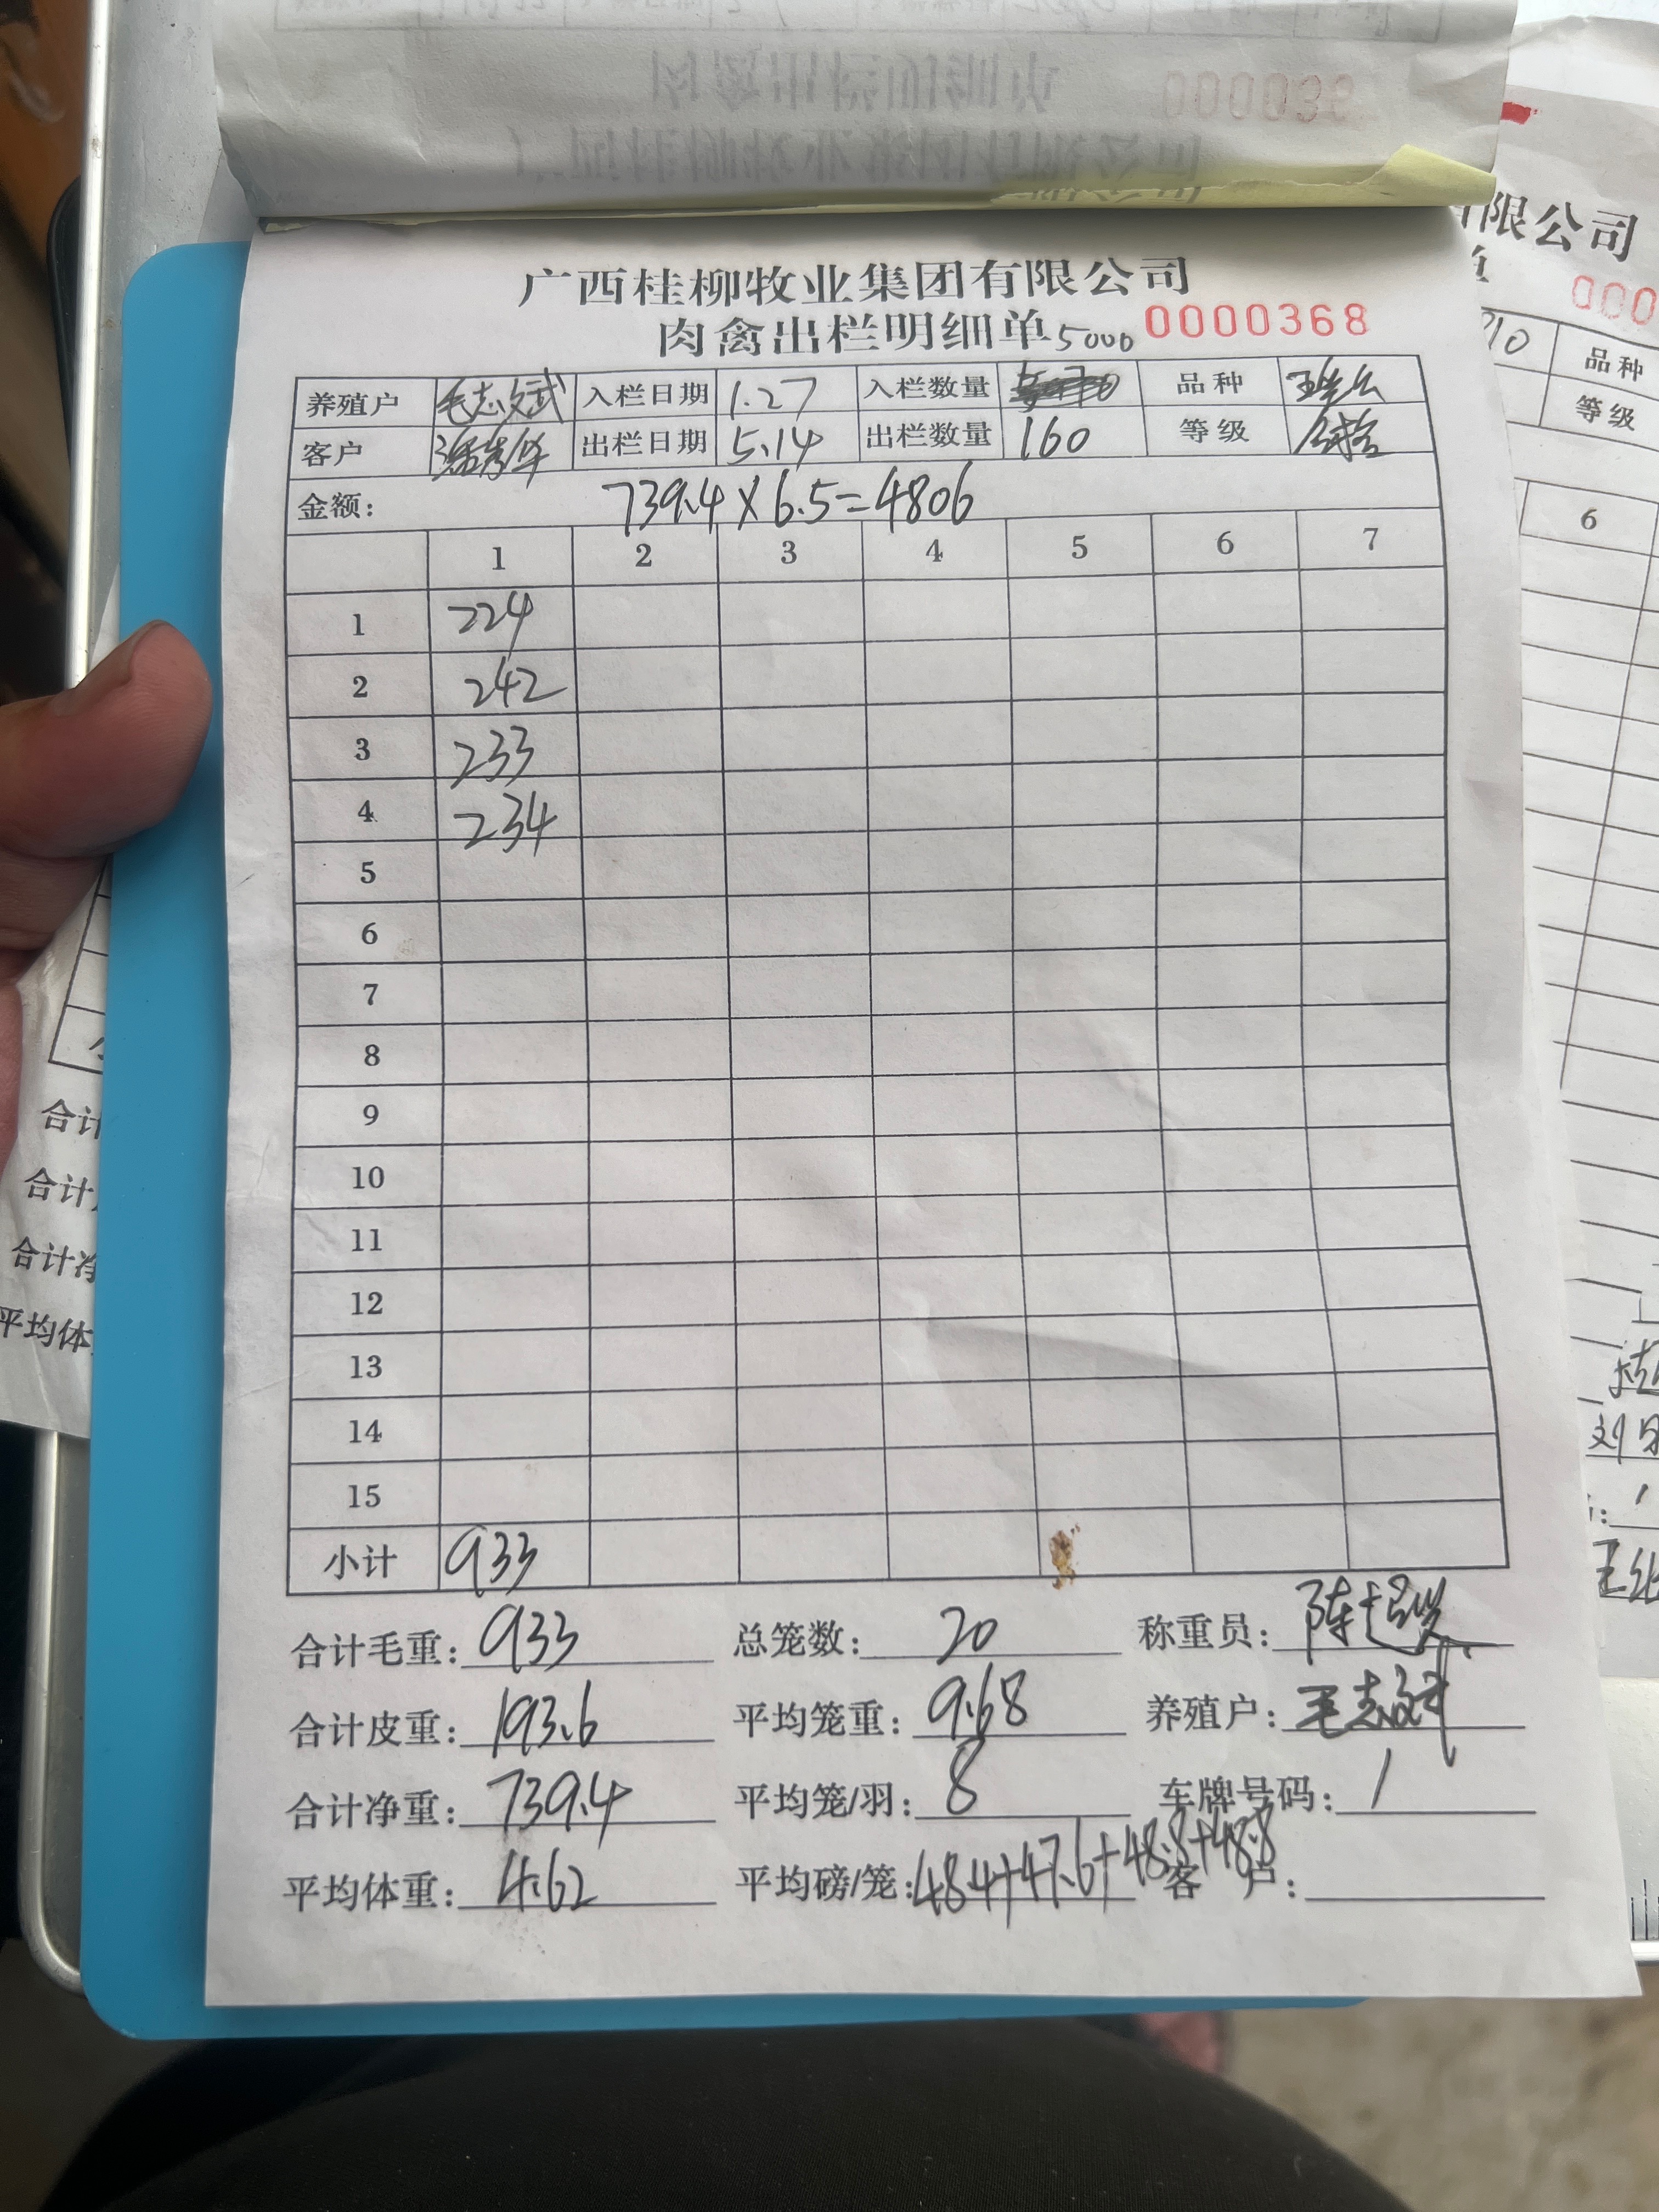 广西桂柳牧业集团有限公司
肉禽出栏明细单 5000 0000368
养殖户 毛志斌 入栏日期 1.27 入栏数量 品种
客户 出栏日期 5.14 出栏数量 160 等级
金额: 739.4×6.5=4806
1 2 3 4 5 6 7
1 224
2 242
3 233
4 234
5
6
7
8
9
10
11
12
13
14
15
小计 933
合计毛重: 933 总笼数: 20 称重员:
合计皮重: 193.6 平均笼重: 9.68 养殖户: 毛志斌
合计净重: 739.4 平均笼/羽: 8 车牌号码: 1
平均体重: 4.62 平均磅/笼: 48.4+47.6+48.8+48.8 客户:
有限公司
000
210 品种
等级
6
合计
合计
合计净
平均体